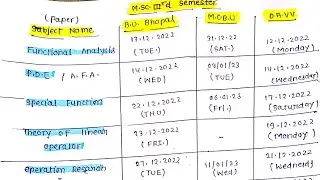 M.SC. IIIrd Semester
(Paper)
Subject Name
B.U. Bhopal
M.C.B.U
D.A.V.V
Functional Analysis
13.12.2022
(TUE.)
31.12.22
(SAT.)
12.12.2022
(Monday)
P.D.E / A.F.A.
14.12.2022
(WED)
03/01/23
(TUE)
14.12.2022
(Wednesday)
Special Function
22.12.2022
(THU)
06.01.23
(Fri.)
17.12.2022
(Saturday)
Theory of linear
operator
23.12.2022
(FRI.)
-
19.12.2022
(Monday)
Operation Research
27.12.2022
(TUE)
11/01/23
(Wed
21.12.2022
(Wednesd